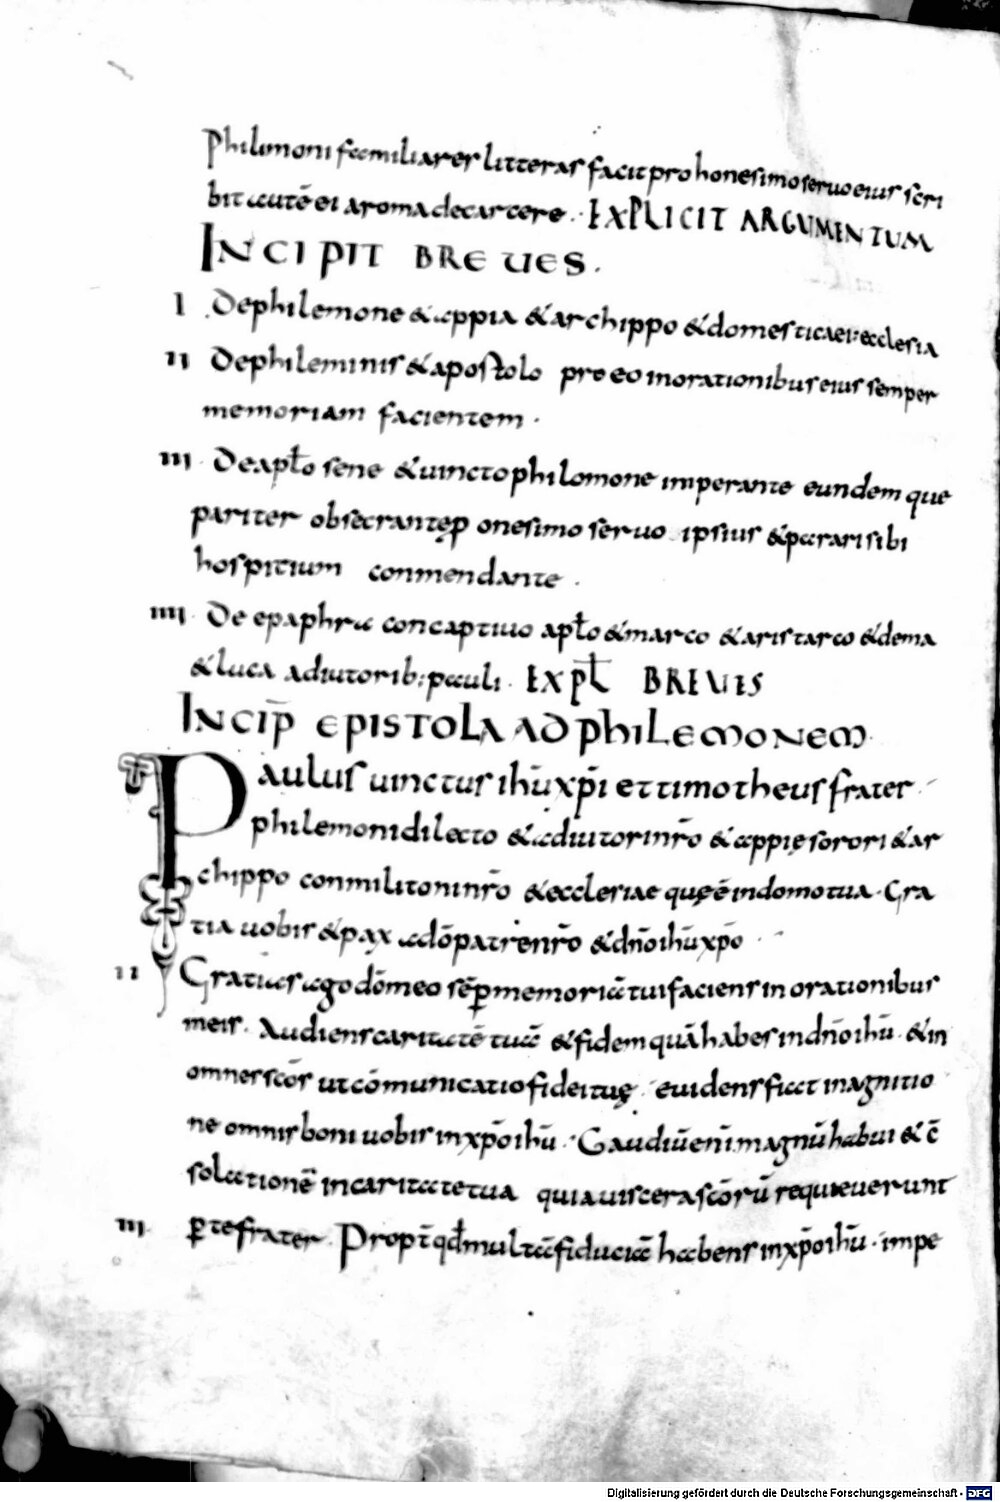 Philimoni familiarer litteras facit pro honesimo seruo eius scri
bit autē ei a roma de carcere. EXPLICIT ARGUMENTUM
INCIPIT BREUES.
I De philemone & appia & archippo & domesticae ei ecclesia
II De phileminis & apostolo pro eo in orationibus eius semper
memoriam facientem.
III De apło sene & uincto philomone imperante eundem que
pariter obsecrante ꝓ onesimo seruo ipsius & parari sibi
hospitium conmendante.
IIII De epaphra concaptiuo apło & marco & aristarco & dema
& luca adiutorib; pauli. EXPŁ BREUIS
INCIP̄ EPISTOLA AD PHILEMONEM
Paulus uinctus ihū xp̄i et timotheus frater
philemoni dilecto & adiutori nr̄o & appię sorori & ar
chippo conmilitoni nr̄o & ecclesiae quę ē in domo tua. Gra
tia uobis & pax a dō patre nr̄o & dn̄o ihū xp̄o
II Gratias ago dō meo sēꝑ memoriā tui faciens in orationibus
meis. Audiens caritatē tuā & fidem quā habes in dn̄o ihū. & in
omnes scōs ut cōmunicatio fidei tuę euidens fiat in agnitio
ne omnis boni uobis in xp̄o ihū. Gaudiū eni magnū habui & c̄
solationē in caritate tua quia uiscera scōrū requieuerunt
III ꝑ te frater. Propt̄ qđ multā fiduciā habens in xp̄o ihū. impe
Digitalisierung gefördert durch die Deutsche Forschungsgemeinschaft - DFG